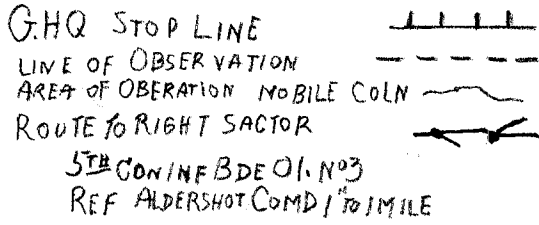 G.HQ STOP LINE
LINE OF OBSERVATION
AREA OF OBERATION MOBILE COLN
ROUTE TO RIGHT SACTOR
5TH CON INF BDE O1. No3
REF ALDERSHOT COMD 1" TO 1 MILE